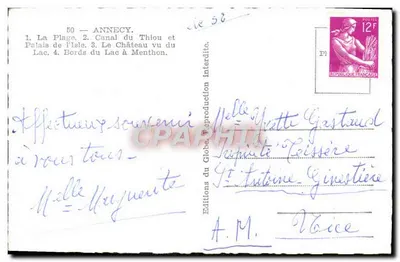 50 — ANNECY.
1. La Plage. 2. Canal du Thiou et
Palais de l'Isle. 3. Le Château vu du
Lac. 4. Bords du Lac à Menthon.
le 58
12F
POSTES
REPUBLIQUE FRANÇAISE
Editions du Globe Reproduction interdite.
Affectueux souvenir
à vous tous —
Melle Marguerite
Melle Yvette Gastaud
St Antoine Ginestière
A.M. Nice
CPARHPIT